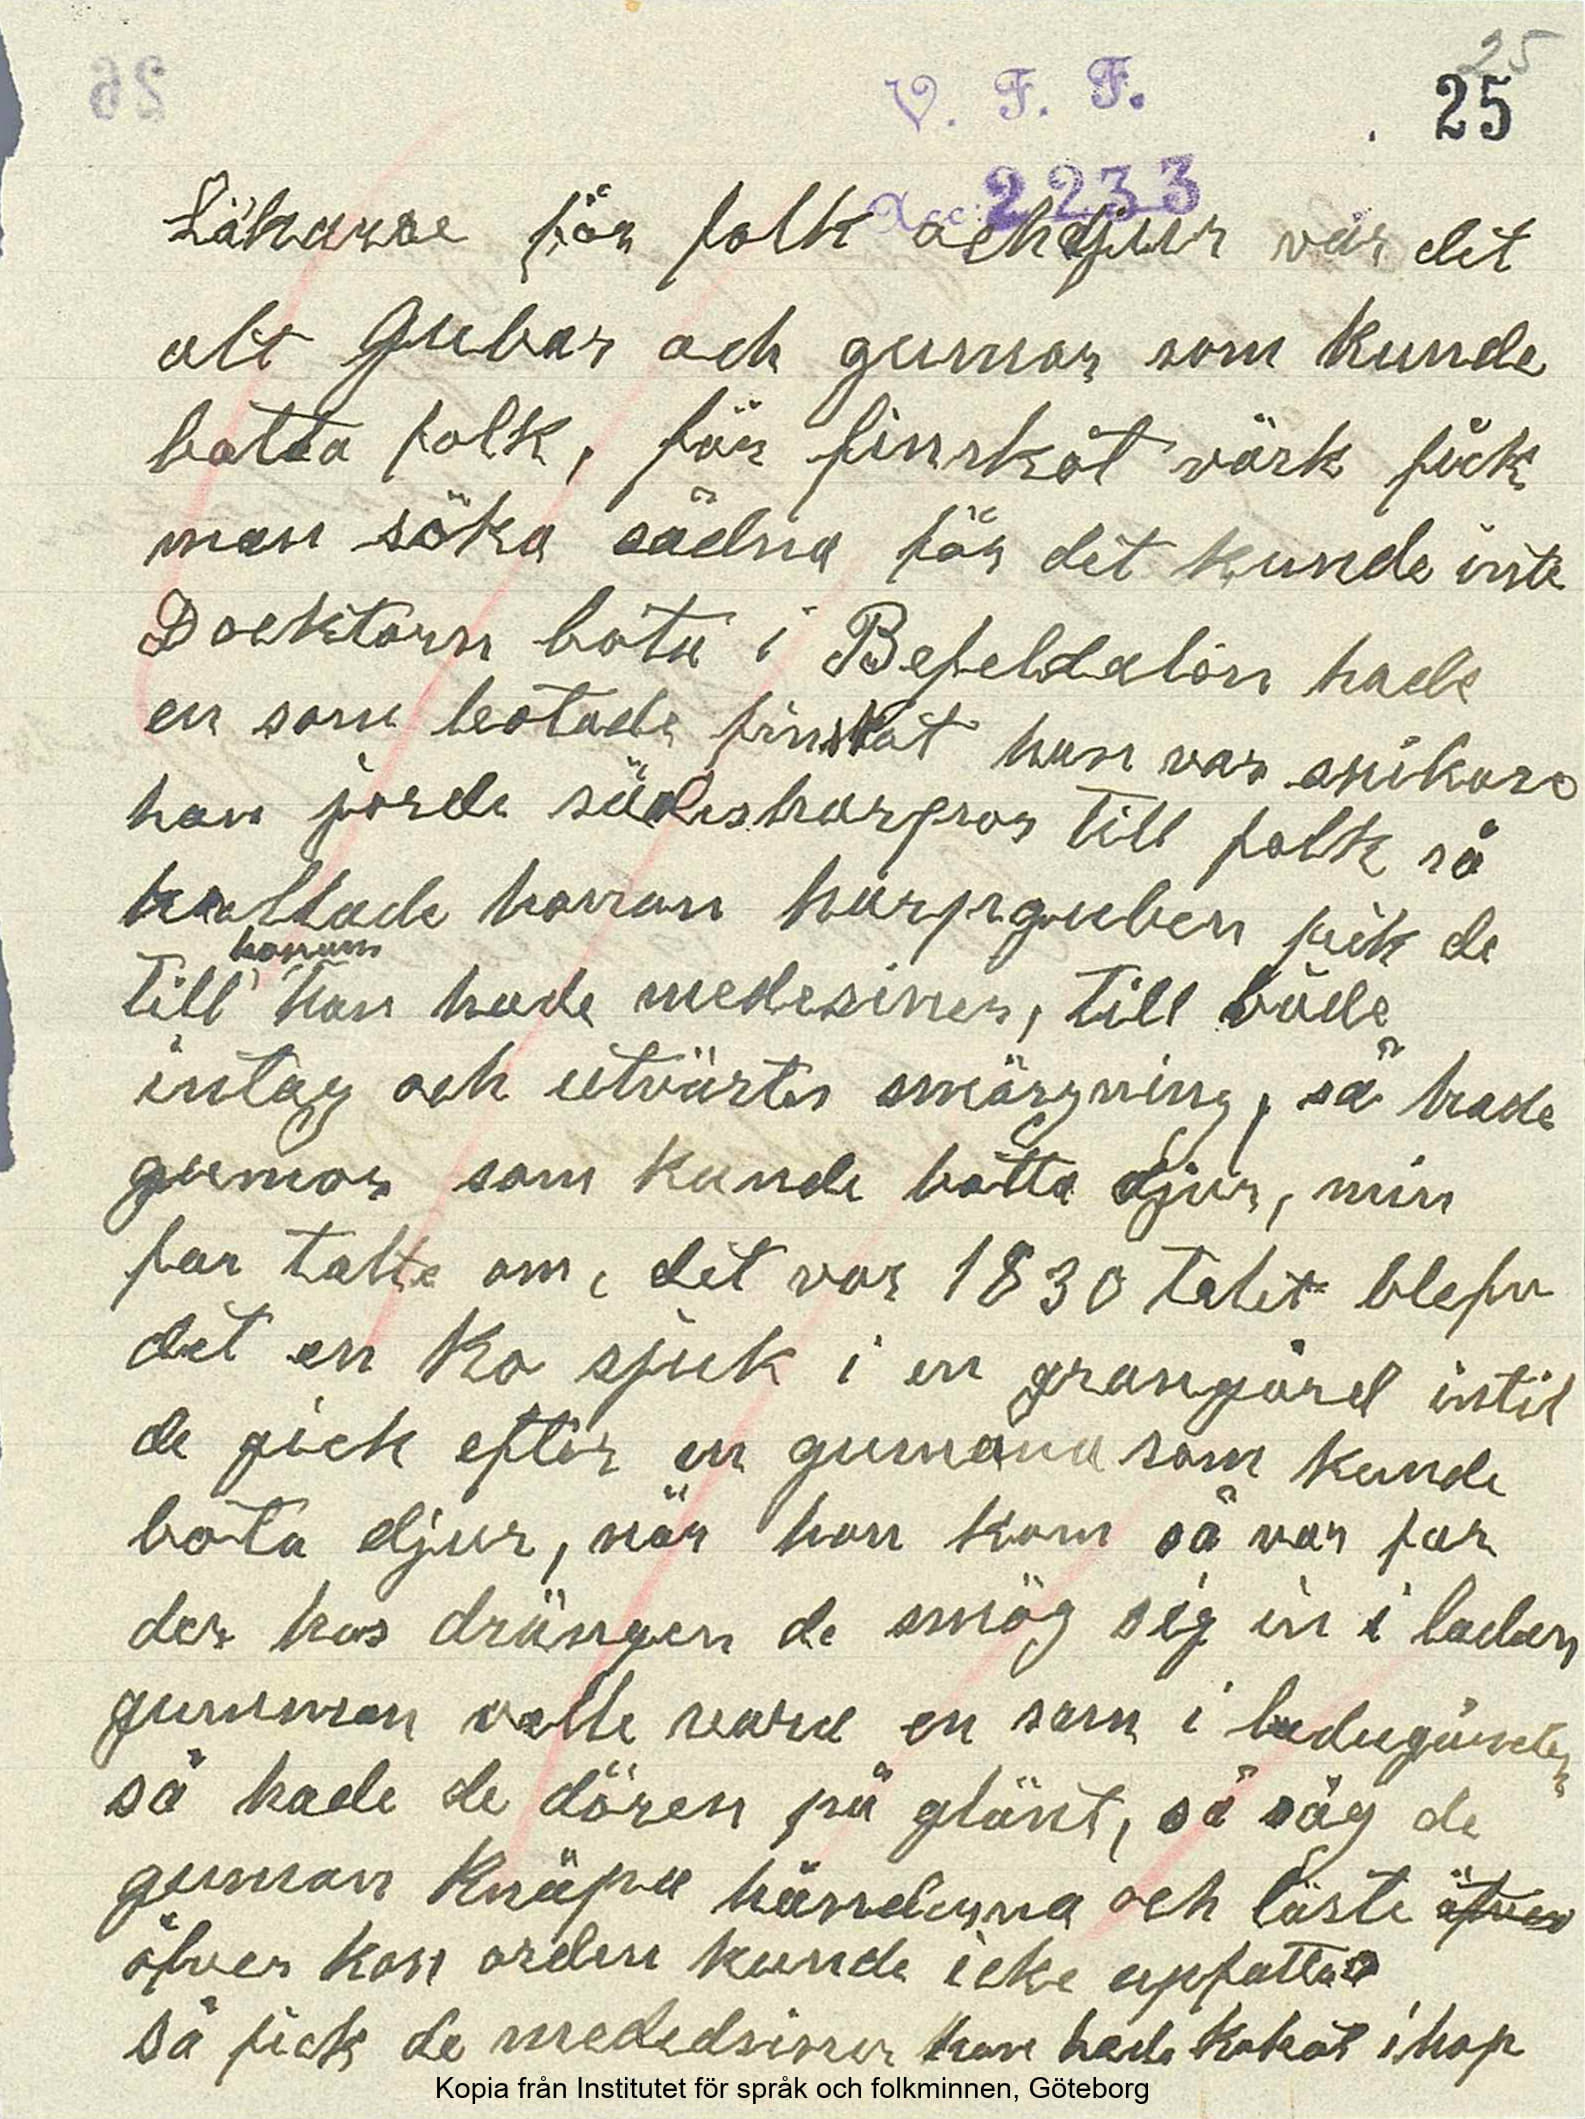 25
V. F. F.
25
Acc. 2233
Läkarae för folk och djur var det
alt Gubar och gumor som kunde
botta folk, för finskot värk fick
man söka sådna för det kunde inte
Docktorn bota i Befeldalön hade
en som botade finskot han var snikare
han jorde sädesharpor till folk så
kallade honnan harpguben fick de
honum
till han hade medesiner, till både
intag och utvärtes smörgning, så hade
gumor som kunde botta djur, min
far talte om, det var 1830 talet blefv
det en Ko sjuk i en grangård intil
de gick efter en gumana som kunde
bota djur, när hon kom så var far
der hos drängen de smög sig in i ladan
gumman volle vara en sam i ladugården
så hade de dören på glänt, så såg de
guman Knäpa händerna och läste öfver
öfver kon orden kunde icke upfatta
Så fick de mededsiner hon hade kokat ihop
Kopia från Institutet för språk och folkminnen, Göteborg